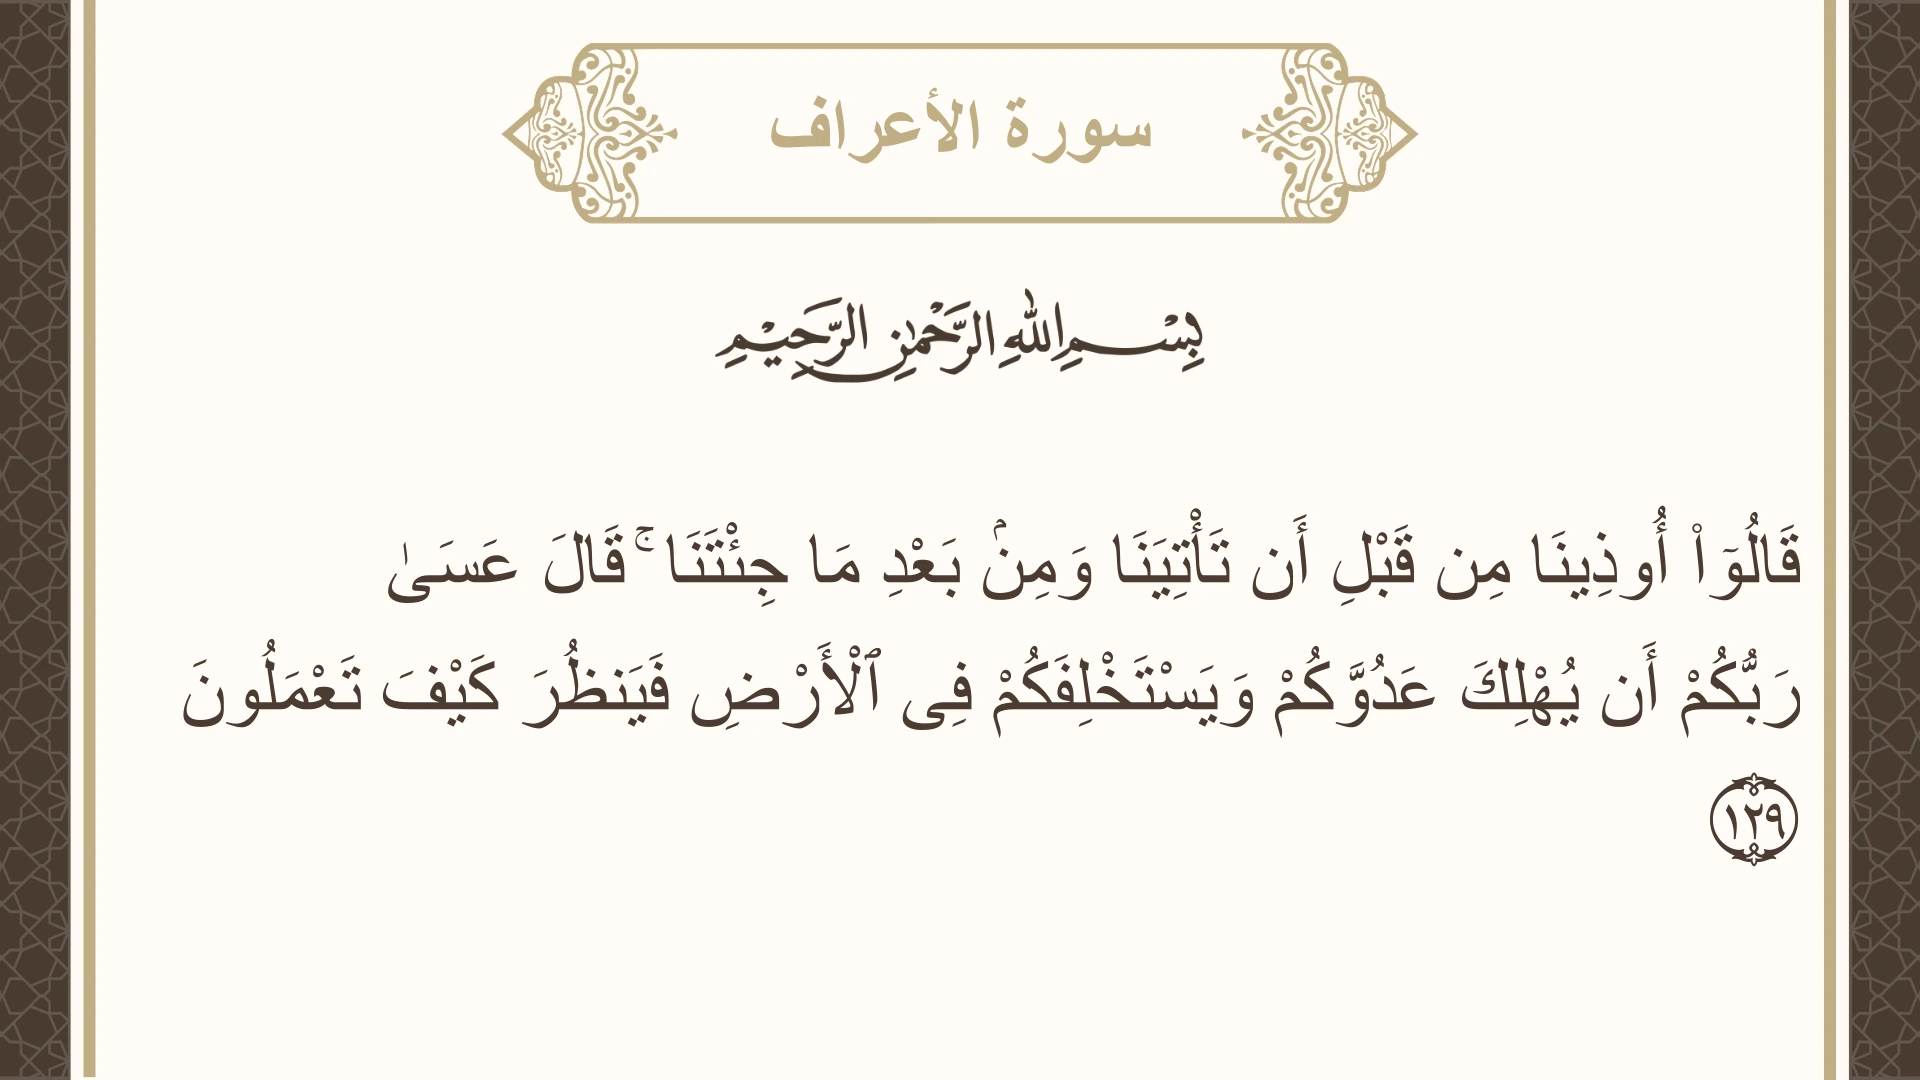 سورة الأعراف
بِسْمِ اللهِ الرَّحْمٰنِ الرَّحِيْمِ
قَالُوٓا۟ أُوذِينَا مِن قَبْلِ أَن تَأْتِيَنَا وَمِنۢ بَعْدِ مَا جِئْتَنَا ۚ قَالَ عَسَىٰ
رَبُّكُمْ أَن يُهْلِكَ عَدُوَّكُمْ وَيَسْتَخْلِفَكُمْ فِى ٱلْأَرْضِ فَيَنظُرَ كَيْفَ تَعْمَلُونَ
١٢٩